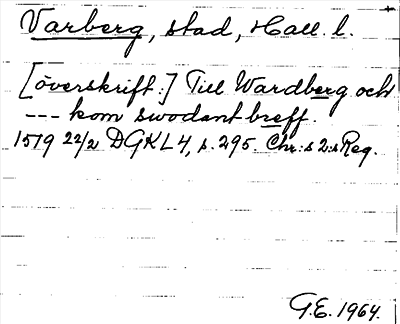 Varberg, stad, Hall. l.
[överskrift:] Till Wardberg och
--- kom swodant breff.
1519 22/2 DGKL 4, s. 295. Chr: s 2: s Reg.
G.E. 1964.